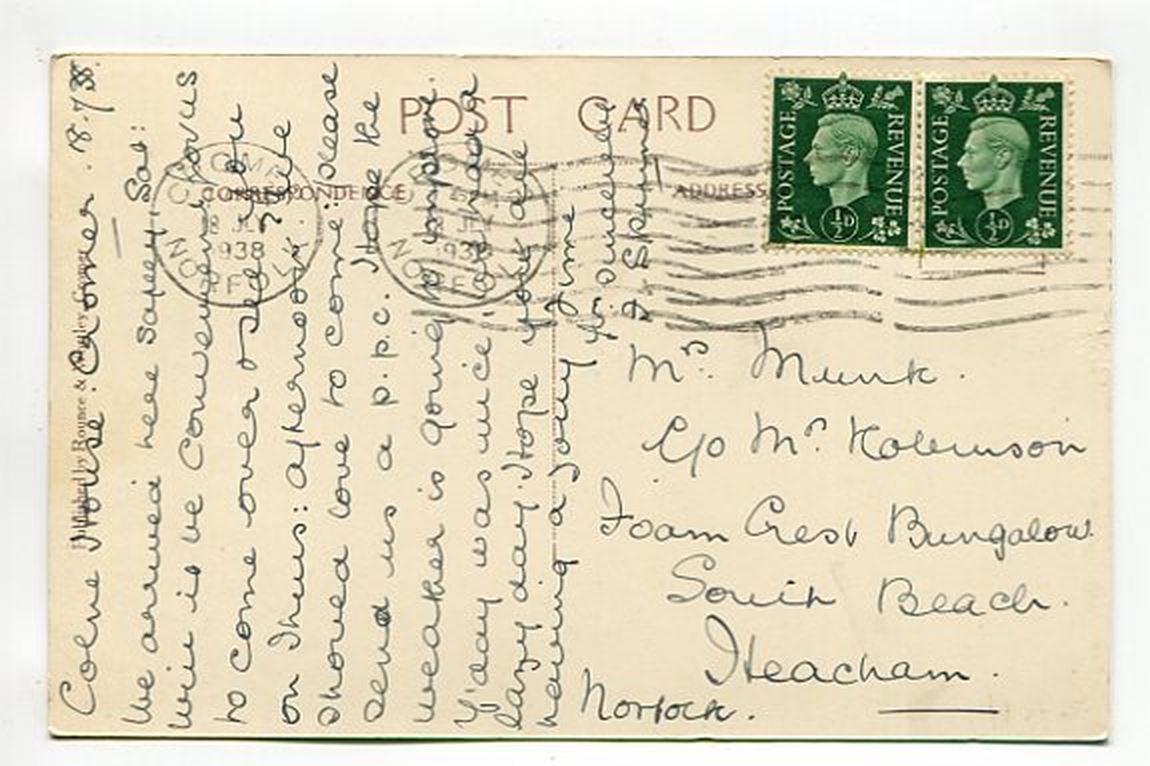 POST CARD
CORRESPONDENCE
ADDRESS
POSTAGE REVENUE
½D
POSTAGE REVENUE
½D
CROMER
18 JLY
1938
NORFOLK
CROMER
JLY
1938
NORFOLK
Colne House. Cromer. 18.7.38.
We arrived here safely, Sat:
Will it be convenient for us
to come over & see you
on Thurs: afternoon? We
should love to come. Please
send us a p.p.c. Hope the
weather is going to improve.
Y'day was nice. We had a
lazy day. Hope you are
having a jolly time
Yrs. sincerely
Mrs. Munk.
C/o Mrs. Robinson
Foam Crest Bungalow.
South Beach.
Heacham.
Norfolk.